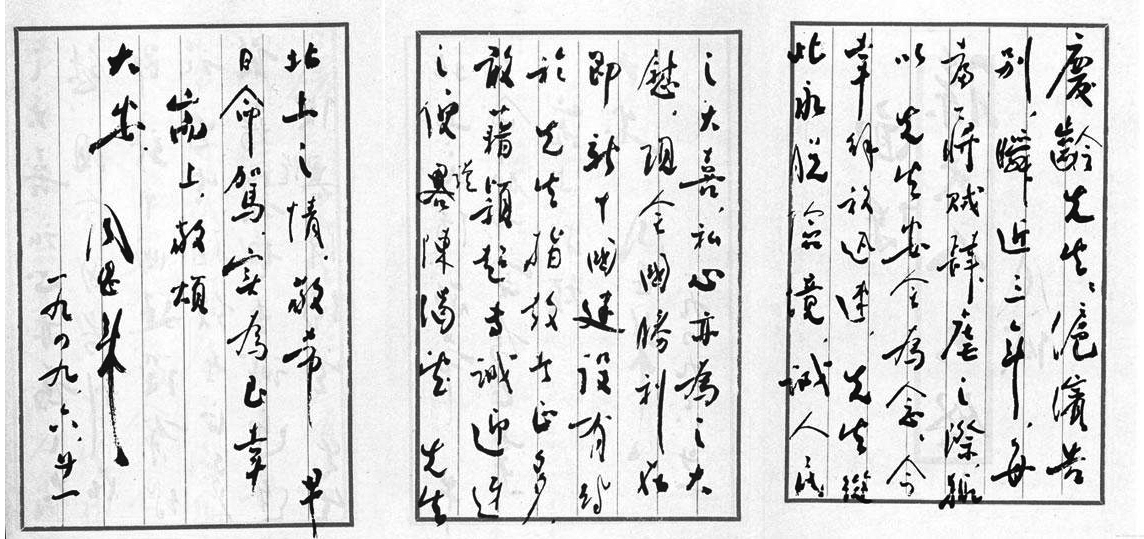 慶齡先生：滬濱告
別，瞬近三年，每
當蔣賊肆虐之際，輒
以先生安全為念。今
幸解放迅速，先生從
此永脫險境，誠人民
之大喜，私心亦為之大
慰。現全國勝利在
即，新中國建設有待
於先生指教者正多，
敢藉穎超專誠迎迓
之便，謹畧陳渴望先生
北上之情，敬希早
日命駕，實為至幸
耑上，敬頌
大安
周恩来
一九四九、六、廿一